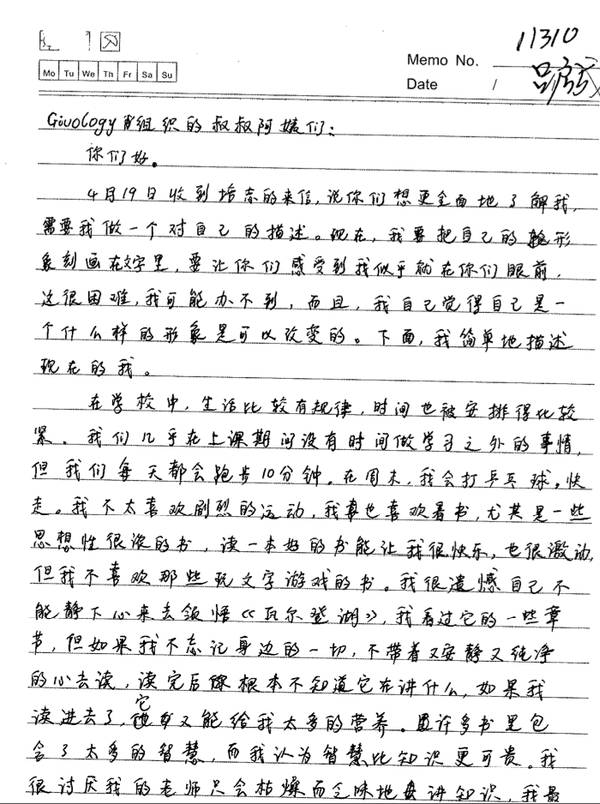 11310
Memo No.
Mo Tu We Th Fr Sa Su
Date /
Givology组织的叔叔阿姨们：
你们好。
4月19日收到培志的来信，说你们想更全面地了解我，
需要我做一个对自己的描述。现在，我要把自己的形
象刻画在文字里，要让你们感受到我似乎就在你们眼前，
这很困难，我可能办不到，而且，我自己觉得自己是一
个什么样的形象是可以改变的。下面，我简单地描述
现在的我。
在学校中，生活比较有规律，时间也被安排得比较
紧。我们几乎在上课期间没有时间做学习之外的事情，
但我们每天都会跑步10分钟。在周末，我会打乒乓球。快
走。我不太喜欢剧烈的运动，我也喜欢看书，尤其是一些
思想性很浓的书，读一本好的书能让我很快乐，也很激动，
但我不喜欢那些玩文字游戏的书。我很遗憾自己不
能静下心来去领悟《瓦尔登湖》，我看过它的一些章
节，但如果我不忘记身边的一切，不带着又安静又纯净
的心去读，读完后根本不知道它在讲什么，如果我
读进去了，它又能给我太多的营养。许多书里包
含了太多的智慧，而我认为智慧比知识更可贵。我
很讨厌我的老师只会枯燥而乏味地讲知识，我最